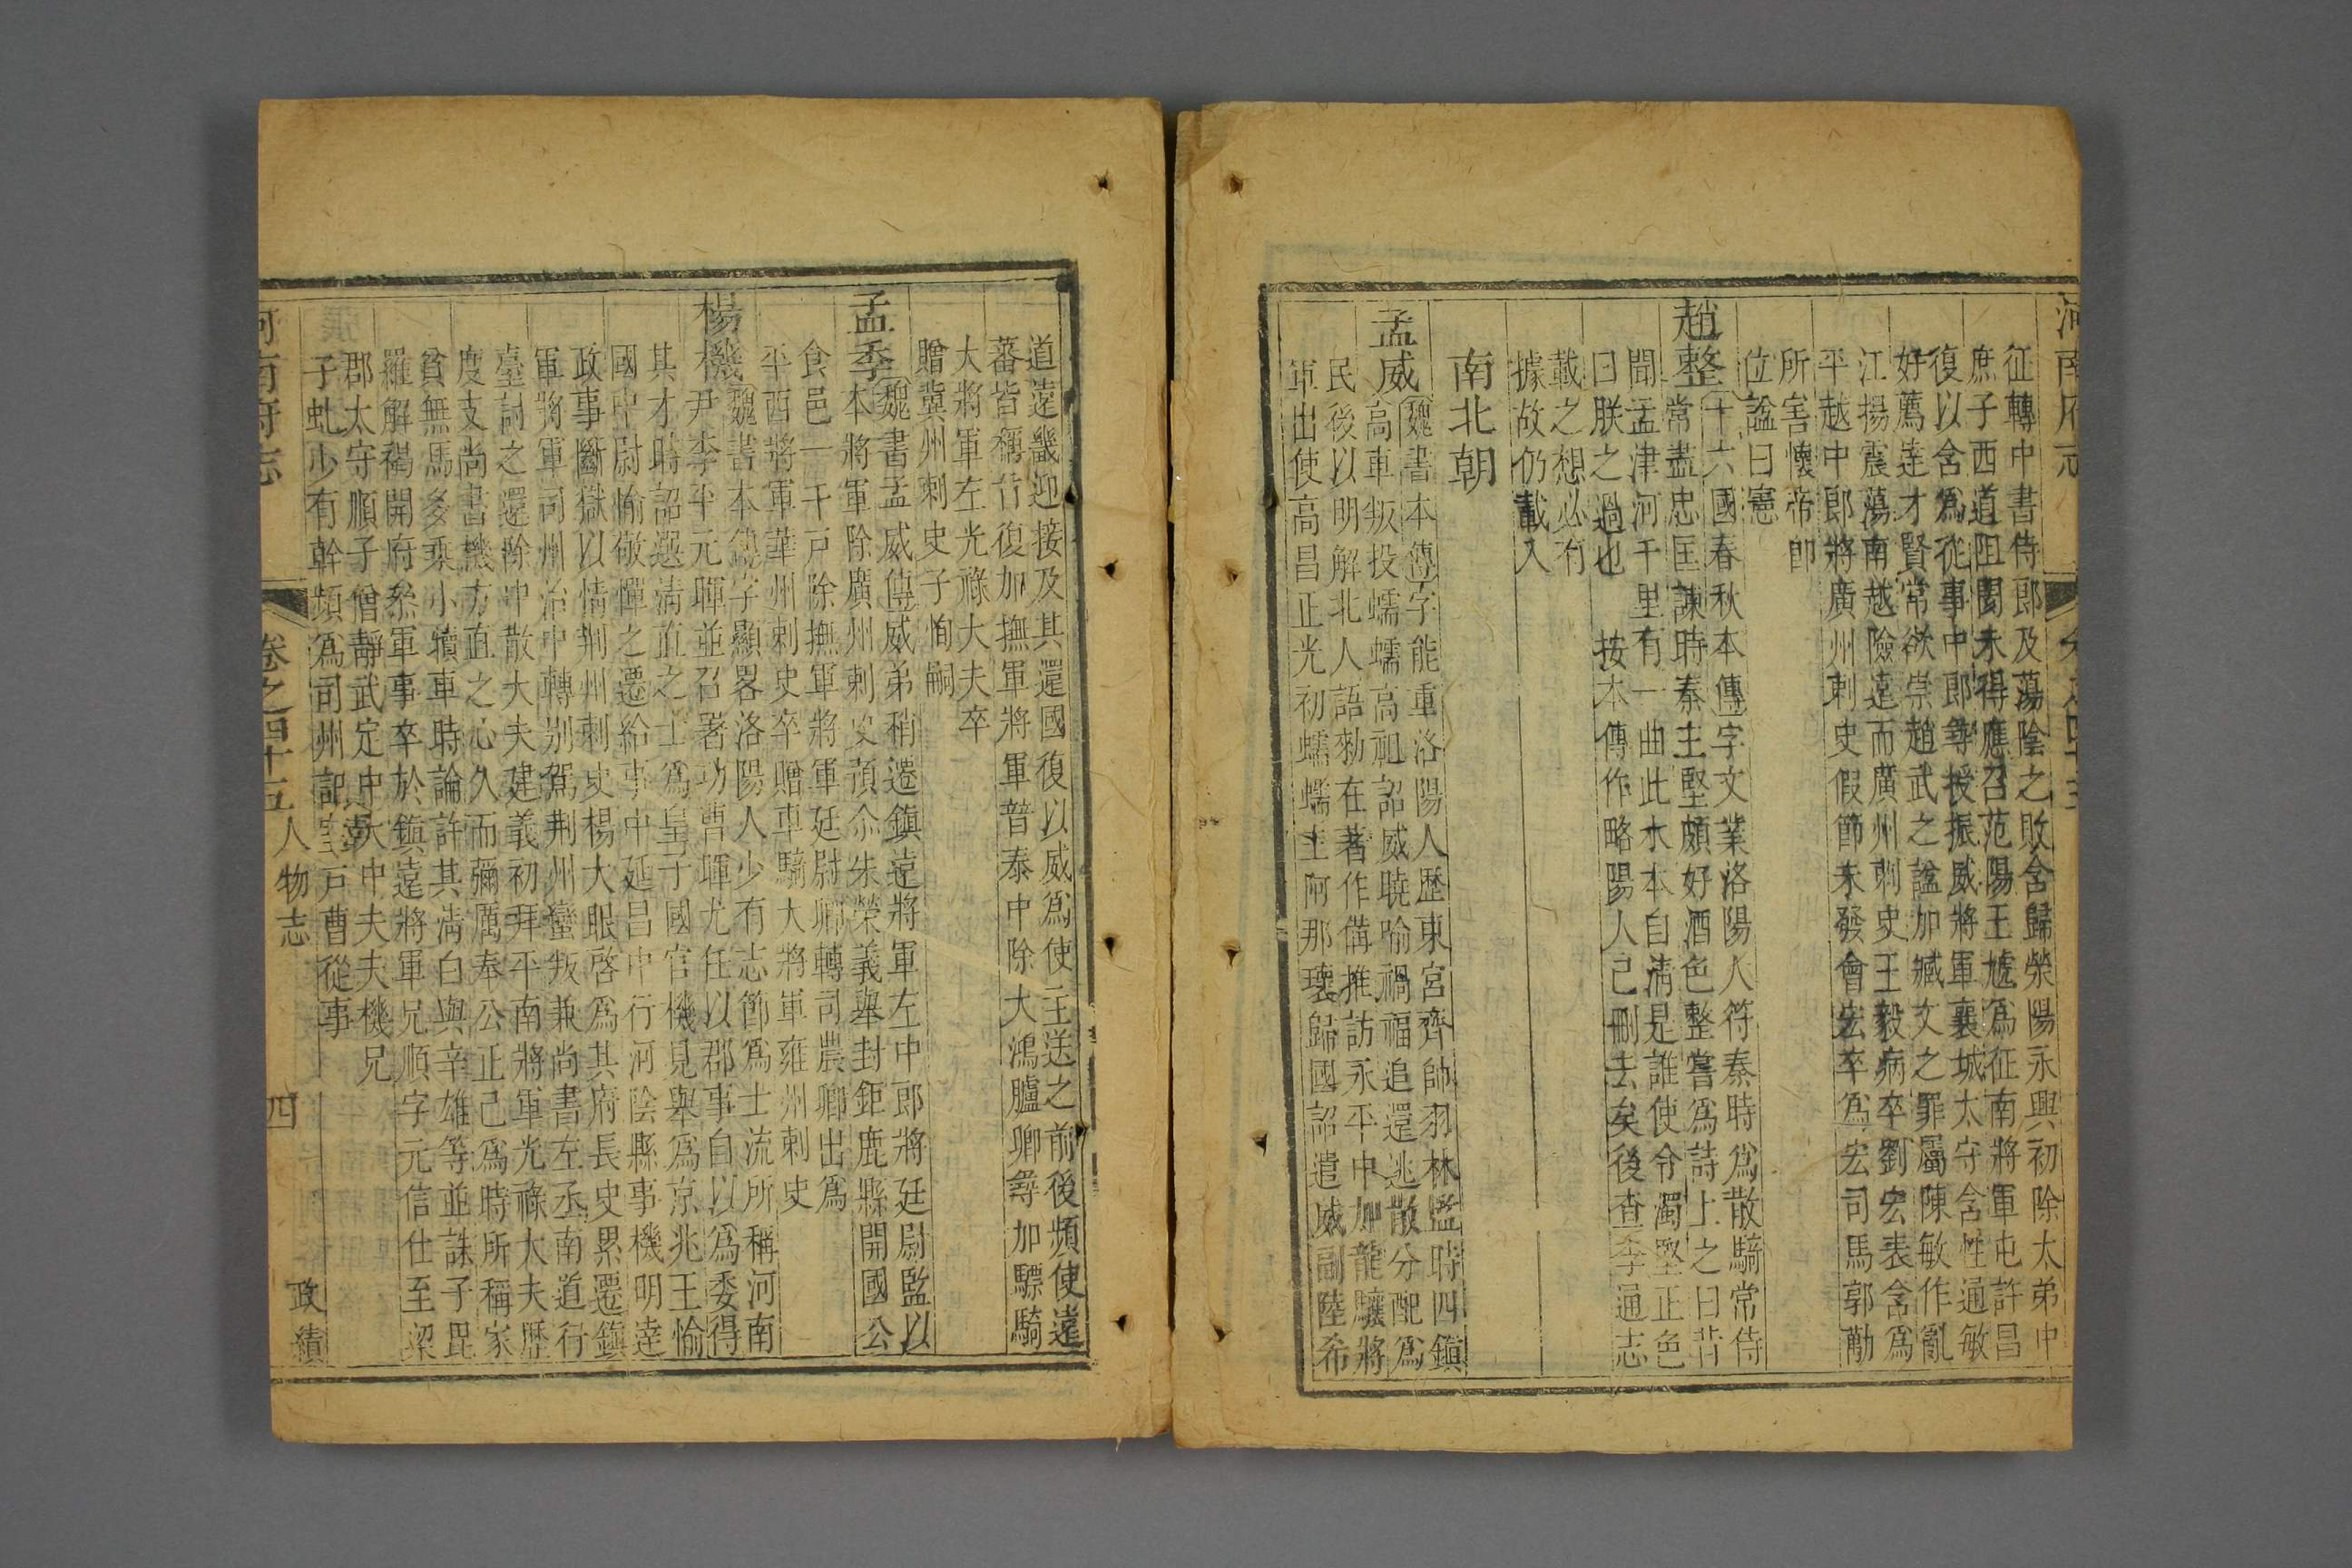 征轉中書侍郎及蕩陰之敗含歸滎陽永興初除太弟中
庶子西道阻閡未得應召范陽王虓爲征南將軍屯許昌
復以含爲從事中郎尋授振威將軍襄城太守含性通敏
好薦達才賢常欲崇趙武之諡加臧文之罪屬陳敏作亂
江揚震蕩南越險遠而廣州刺史王毅病卒劉宏表含爲
平越中郎將廣州刺史假節未發會宏卒爲宏司馬郭勱
所害懷帝卽
位諡曰憲
趙整十六國春秋本傳字文業洛陽人符秦時爲散騎常侍
常盡忠匡諫時秦主堅頗好酒色整嘗爲詩上之曰昔
聞孟津河千里有一曲此水本自清是誰使令濁堅正色
曰朕之過也 按本傳作略陽人己刪去矣後查李通志
載之想必有
據故仍載入
南北朝
孟威魏書本傳字能重洛陽人歷東宮齊帥羽林監時四鎮
高車叛投蠕蠕高祖詔威曉喻禍福追還逃散分配爲
民後以明解北人語勑在著作備推訪永平中加龍驤將
軍出使高昌正光初蠕蠕主阿那瓌歸國詔遣威副陸希
道遠畿迎接及其還國復以威爲使主送之前後頻使遠
蕃皆稱旨復加撫軍將軍普泰中除大鴻臚卿尋加驃騎
大將軍左光祿大夫卒
贈冀州刺史子恂嗣
孟季魏書孟威傳威弟稍遷鎮遠將軍左中郎將廷尉監以
本將軍除廣州刺史預尒朱榮義舉封鉅鹿縣開國公
食邑一千戸除撫軍將軍廷尉卿轉司農卿出爲
平西將軍華州刺史卒贈車騎大將軍雍州刺史
楊機魏書本傳字顯畧洛陽人少有志節爲士流所稱河南
尹李平元暉並召署功曹暉尤任以郡事自以爲委得
其才時詔選清直之士爲皇子國官機見舉爲京兆王愉
國中尉愉敬憚之遷給事中延昌中行河陰縣事機明達
政事斷獄以情荆州刺史楊大眼啓爲其府長史累遷鎮
軍將軍司州治中轉别駕荆州蠻叛兼尚書左丞南道行
臺討之還除中散大夫建義初拜平南將軍光祿大夫歷
度支尚書機方直之心久而彌厲奉公正己爲時所稱家
貧無馬多乘小犢車時論許其清白與辛雄等並誅子毘
羅解褐開府叅軍事卒於鎮遠將軍兄順字元信仕至梁
郡太守順子僧靜武定中太中大夫機兄
子虬少有幹頻爲司州記室戸曹從事
河南府志
卷之四十五 人物志
四
政績